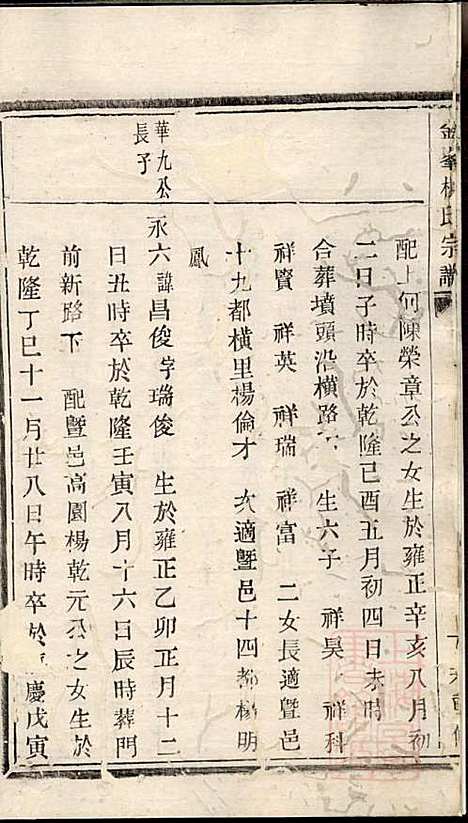 氏宗譜
配上何陳榮章公之女生於雍正辛亥八月初
二日子時卒於乾隆己酉五月初四日未時
合葬墳頭沿橫路下 生六子 祥昊 祥科
祥賢 祥英 祥瑞 祥富 二女長適暨邑
十九都橫里楊倫才 次適暨邑十四都楊明
鳳
華九公
長子
永六諱昌俊字瑞俊 生於雍正乙卯正月十二
日丑時卒於乾隆壬寅八月十六日辰時葬門
前新路下 配暨邑高園楊乾元公之女生於
乾隆丁巳十一月廿八日午時卒於慶戊寅